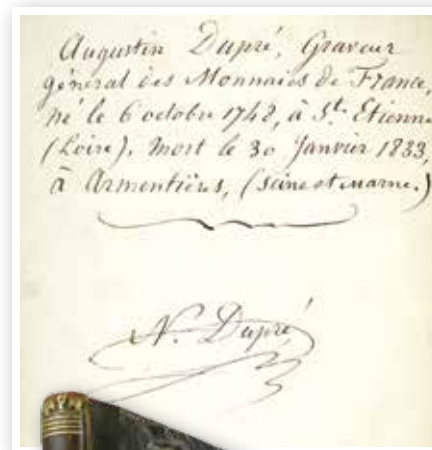 Augustin Dupré, Graveur
général des Monnaies de France,
né le 6 octobre 1748, à St. Etienne
(Loire). Mort le 30 Janvier 1833,
à Armentières, (Seine et Marne.)
N. Dupré